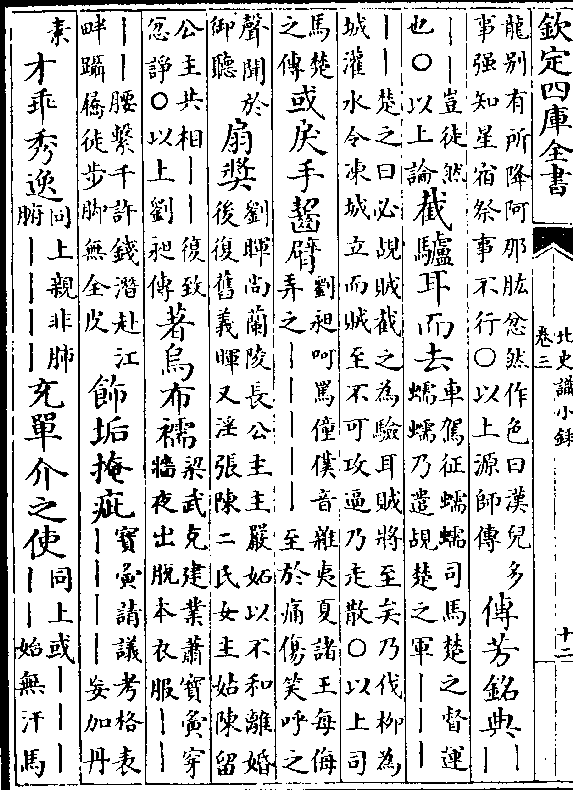 欽定四庫全書
北史識小錄
卷三
十二
龍別有所降阿那肱忿然作色曰漢兒多
事强知星宿祭事不行○以上源師傳
傳芳銘典
丨丨
丨丨豈徒然
也○以上論
截驢耳而去
車駕征蠕蠕司馬楚之督運
蠕蠕乃遣覘楚之軍丨丨丨
丨丨楚之曰必覘賊截之為驗耳賊將至矣乃伐柳為
城灌水令凍城立而賊至不可攻逼乃走散○以上司
馬楚
之傳
或戾手齧臂
劉昶呵罵僮僕音雜夷夏諸王每侮
弄之丨丨丨丨丨至於痛傷笑呼之
聲聞於
御聽
扇奬
劉暉尚蘭陵長公主主嚴妬以不和離婚
後復舊義暉又淫張陳二氏女主姑陳留
公主共相丨丨復致
忿諍○以上劉昶傳
著烏布襦
梁武克建業蕭寶夤穿
牆夜出脫本衣服丨丨
丨丨腰繫千許錢潛赴江
畔躡屩徒步脚無全皮
飾垢掩疵
寶夤請議考格表
丨丨丨丨妄加丹
素
才乖秀逸
同上親非肺
腑丨丨丨丨
充單介之使
同上或丨丨丨
丨丨始無汗馬